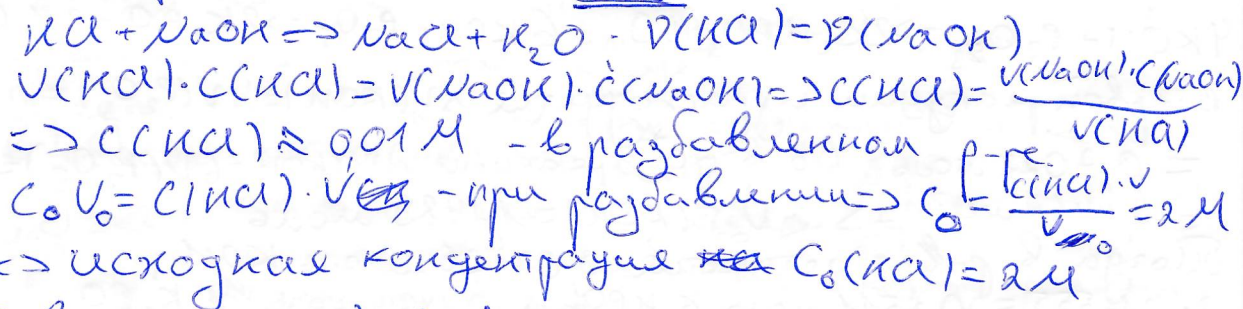 HCl + NaOH => NaCl + H₂O - ν(HCl) = ν(NaOH)
V(HCl)·C(HCl) = V(NaOH)·C(NaOH) => C(HCl) = V(NaOH)·C(NaOH) / V(HCl)
=> C(HCl) ≈ 0,01 M - в разбавленном р-ре.
C₀V₀ = C(HCl)·V - при разбавлении => C₀ = C(HCl)·V / V₀ = 2 M
=> исходная концентрация C₀(HCl) = 2 M